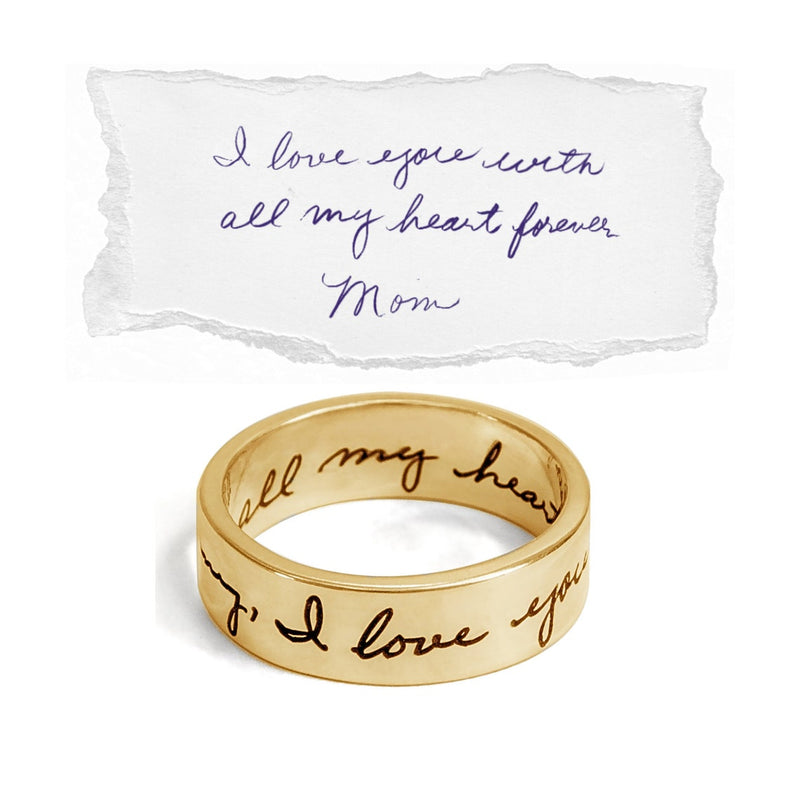 I love you with
all my heart forever
Mom
all my heart
I love you